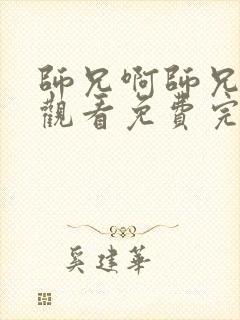 師兄啊師兄
觀看免費完
奚建華